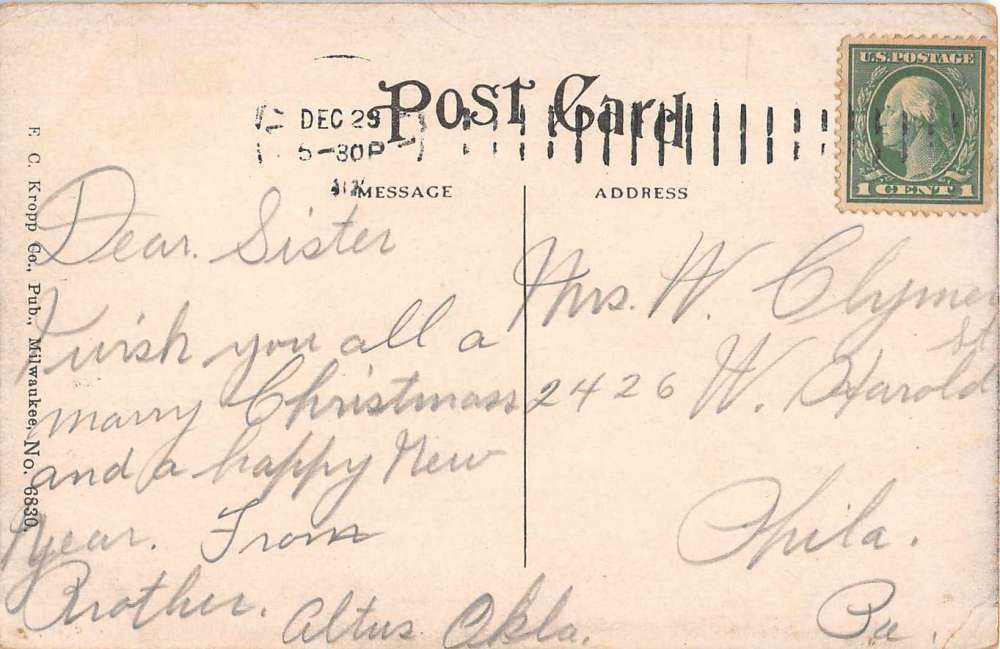 Post Card
DEC 23
5-30P
MESSAGE
ADDRESS
U.S. POSTAGE
1 CENT 1
E. C. Kropp Co., Pub., Milwaukee, No. 6830.
Dear Sister
I wish you all a
marry Christmass
and a happy New
year. From
Brother.
Altus Okla.
Mrs. W. Clymer
2426 W. Harold
St
Phila.
Pa.